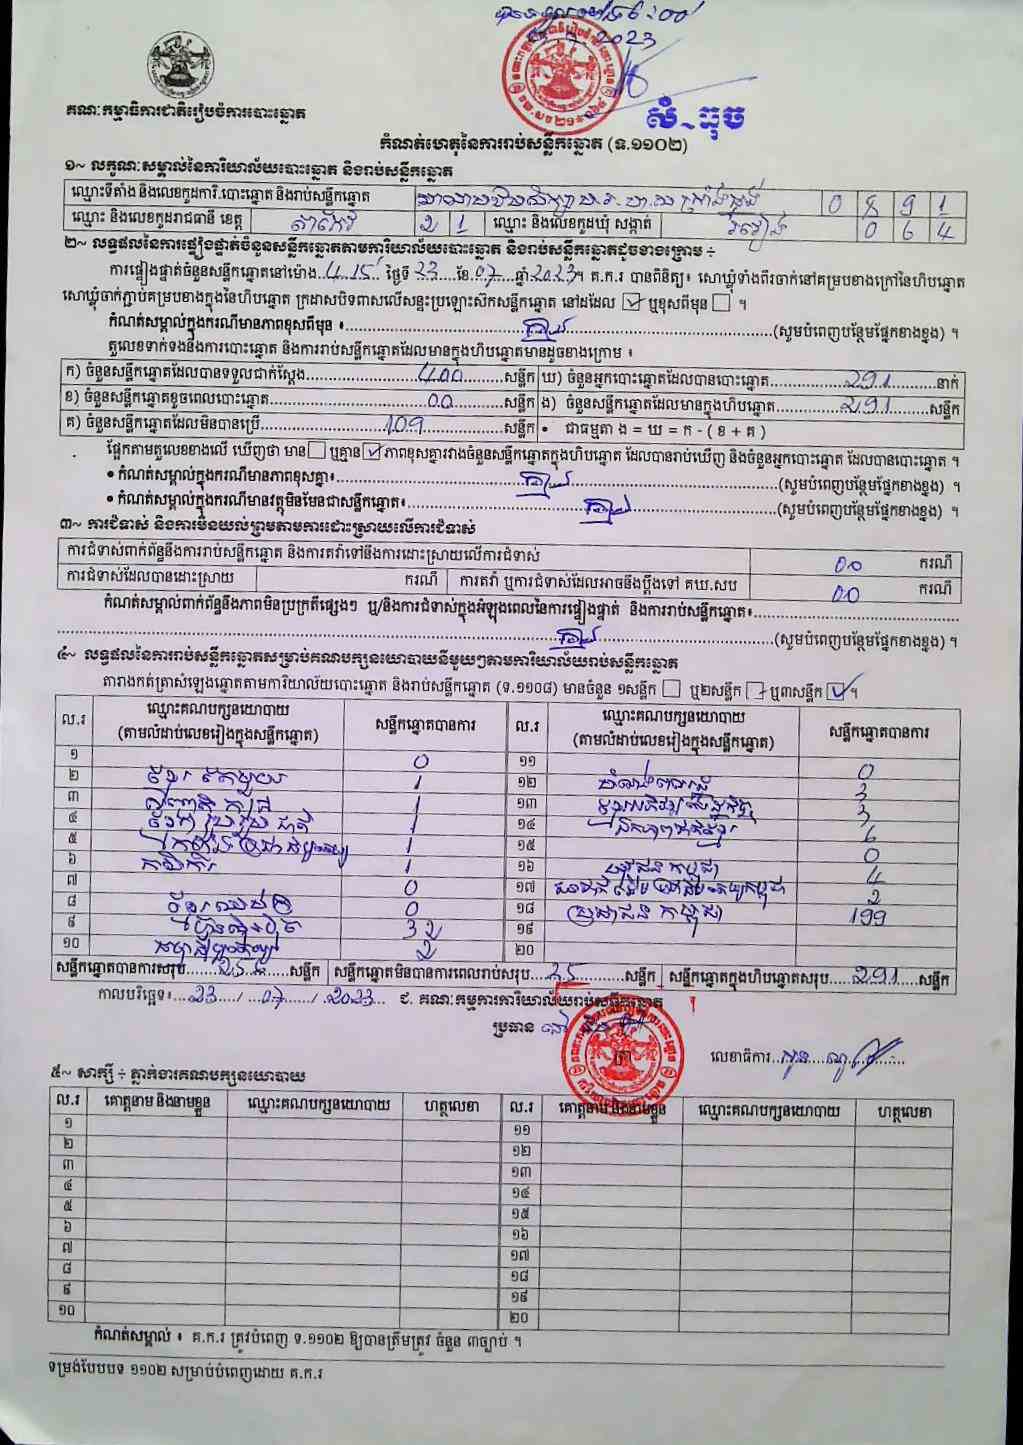 2023
សំ ធុច
គណៈកម្មាធិការជាតិរៀបចំការបោះឆ្នោត
កំណត់ហេតុនៃការរាប់សន្លឹកឆ្នោត (ទ.១១០២)
១~ លក្ខណៈសម្គាល់នៃការិយាល័យបោះឆ្នោត និងរាប់សន្លឹកឆ្នោត
ឈ្មោះទីតាំង និងលេខកូដការិ.បោះឆ្នោត និងរាប់សន្លឹកឆ្នោត 0 8 9 1
ឈ្មោះ និងលេខកូដរាជធានី ខេត្ត តាកែវ 2 1 ឈ្មោះ និងលេខកូដឃុំ សង្កាត់ 0 6 4
២~ លទ្ធផលនៃការផ្ទៀងផ្ទាត់ចំនួនសន្លឹកឆ្នោតតាមការិយាល័យបោះឆ្នោត និងរាប់សន្លឹកឆ្នោតដូចខាងក្រោម ÷
ការផ្ទៀងផ្ទាត់ចំនួនសន្លឹកឆ្នោតនៅម៉ោង..4:15.. ថ្ងៃទី 23 ខែ.07 ឆ្នាំ 2023។ គ.ក.រ បានពិនិត្យ៖ សោឃ្លុំទាំងពីរចាក់នៅគម្របខាងក្រៅនៃហិបឆ្នោត
សោឃ្លុំចាក់ភ្ជាប់គម្របខាងក្នុងនៃហិបឆ្នោត ក្រដាសបិទពាសលើសន្ទះប្រឡោះស៊កសន្លឹកឆ្នោត នៅដដែល ☑ ឬខុសពីមុន ☐ ។
កំណត់សម្គាល់ក្នុងករណីមានភាពខុសពីមុន ៖ គ្មាន (សូមបំពេញបន្ថែមផ្នែកខាងខ្នង) ។
តួលេខទាក់ទងនឹងការបោះឆ្នោត និងការរាប់សន្លឹកឆ្នោតដែលមានក្នុងហិបឆ្នោតមានដូចខាងក្រោម ៖
ក) ចំនួនសន្លឹកឆ្នោតដែលបានទទួលជាក់ស្តែង 400 សន្លឹក ឃ) ចំនួនអ្នកបោះឆ្នោតដែលបានបោះឆ្នោត 291 នាក់
ខ) ចំនួនសន្លឹកឆ្នោតខូចពេលបោះឆ្នោត 00 សន្លឹក ង) ចំនួនសន្លឹកឆ្នោតដែលមានក្នុងហិបឆ្នោត 291 សន្លឹក
គ) ចំនួនសន្លឹកឆ្នោតដែលមិនបានប្រើ 109 សន្លឹក • ជាធម្មតា ង = ឃ = ក - ( ខ + គ )
ផ្អែកតាមតួលេខខាងលើ ឃើញថា មាន ☐ ឬគ្មាន ☑ ភាពខុសគ្នារវាងចំនួនសន្លឹកឆ្នោតក្នុងហិបឆ្នោត ដែលបានរាប់ឃើញ និងចំនួនអ្នកបោះឆ្នោត ដែលបានបោះឆ្នោត ។
• កំណត់សម្គាល់ក្នុងករណីមានភាពខុសគ្នា៖ គ្មាន (សូមបំពេញបន្ថែមផ្នែកខាងខ្នង) ។
• កំណត់សម្គាល់ក្នុងករណីមានវត្ថុមិនមែនជាសន្លឹកឆ្នោត៖ គ្មាន (សូមបំពេញបន្ថែមផ្នែកខាងខ្នង) ។
៣~ ការជំទាស់ និងការមិនយល់ព្រមតាមការដោះស្រាយលើការជំទាស់
ការជំទាស់ពាក់ព័ន្ធនឹងការរាប់សន្លឹកឆ្នោត និងការតវ៉ាទៅនឹងការដោះស្រាយលើការជំទាស់ 00 ករណី
ការជំទាស់ដែលបានដោះស្រាយ ករណី ការតវ៉ា ឬការជំទាស់ដែលអាចនឹងប្តឹងទៅ គឃ.សប 00 ករណី
កំណត់សម្គាល់ពាក់ព័ន្ធនឹងភាពមិនប្រក្រតីផ្សេងៗ ឬ/និងការជំទាស់ក្នុងអំឡុងពេលនៃការផ្ទៀងផ្ទាត់ និងការរាប់សន្លឹកឆ្នោត៖
គ្មាន (សូមបំពេញបន្ថែមផ្នែកខាងខ្នង) ។
៤~ លទ្ធផលនៃការរាប់សន្លឹកឆ្នោតសម្រាប់គណបក្សនយោបាយនីមួយៗតាមការិយាល័យរាប់សន្លឹកឆ្នោត
តារាងកត់ត្រាសំឡេងឆ្នោតតាមការិយាល័យបោះឆ្នោត និងរាប់សន្លឹកឆ្នោត (ទ.១១០៨) មានចំនួន ១សន្លឹក ☐ ឬ២សន្លឹក ☐ ឬ៣សន្លឹក ☑ ។
ល.រ ឈ្មោះគណបក្សនយោបាយ (តាមលំដាប់លេខរៀងក្នុងសន្លឹកឆ្នោត) សន្លឹកឆ្នោតបានការ ល.រ ឈ្មោះគណបក្សនយោបាយ (តាមលំដាប់លេខរៀងក្នុងសន្លឹកឆ្នោត) សន្លឹកឆ្នោតបានការ
១ 0 ១១ 0
២ 1 ១២ 3
៣ 1 ១៣ 3
៤ 1 ១៤ 6
៥ 1 ១៥ 0
៦ កសិករ 1 ១៦ 4
៧ 0 ១៧ 2
៨ 0 ១៨ ប្រជាជន កម្ពុជា 199
៩ 32 ១៩
១០ 2 ២០
សន្លឹកឆ្នោតបានការសរុប សន្លឹក សន្លឹកឆ្នោតមិនបានការពេលរាប់សរុប 35 សន្លឹក សន្លឹកឆ្នោតក្នុងហិបឆ្នោតសរុប 291 សន្លឹក
កាលបរិច្ឆេទ៖ 23 / 07 / 2023 ជ. គណៈកម្មការការិយាល័យរាប់សន្លឹកឆ្នោត
ប្រធាន
លេខាធិការ
៥~ សាក្សី ÷ ភ្នាក់ងារគណបក្សនយោបាយ
ល.រ គោត្តនាម និងនាមខ្លួន ឈ្មោះគណបក្សនយោបាយ ហត្ថលេខា ល.រ គោត្តនាម និងនាមខ្លួន ឈ្មោះគណបក្សនយោបាយ ហត្ថលេខា
១ ១១
២ ១២
៣ ១៣
៤ ១៤
៥ ១៥
៦ ១៦
៧ ១៧
៨ ១៨
៩ ១៩
១០ ២០
កំណត់សម្គាល់ ៖ គ.ក.រ ត្រូវបំពេញ ទ.១១០២ ឱ្យបានត្រឹមត្រូវ ចំនួន ៣ច្បាប់ ។
ទម្រង់បែបបទ ១១០២ សម្រាប់បំពេញដោយ គ.ក.រ